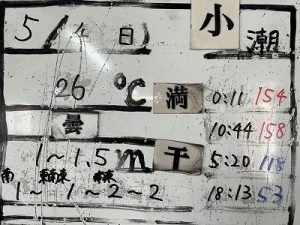 5/4(日) 小潮
26℃ 満 0:11 154
曇 10:44 158
1〜1.5m 干 5:20 118
南 南東 東
1〜1〜2〜2 18:13 53